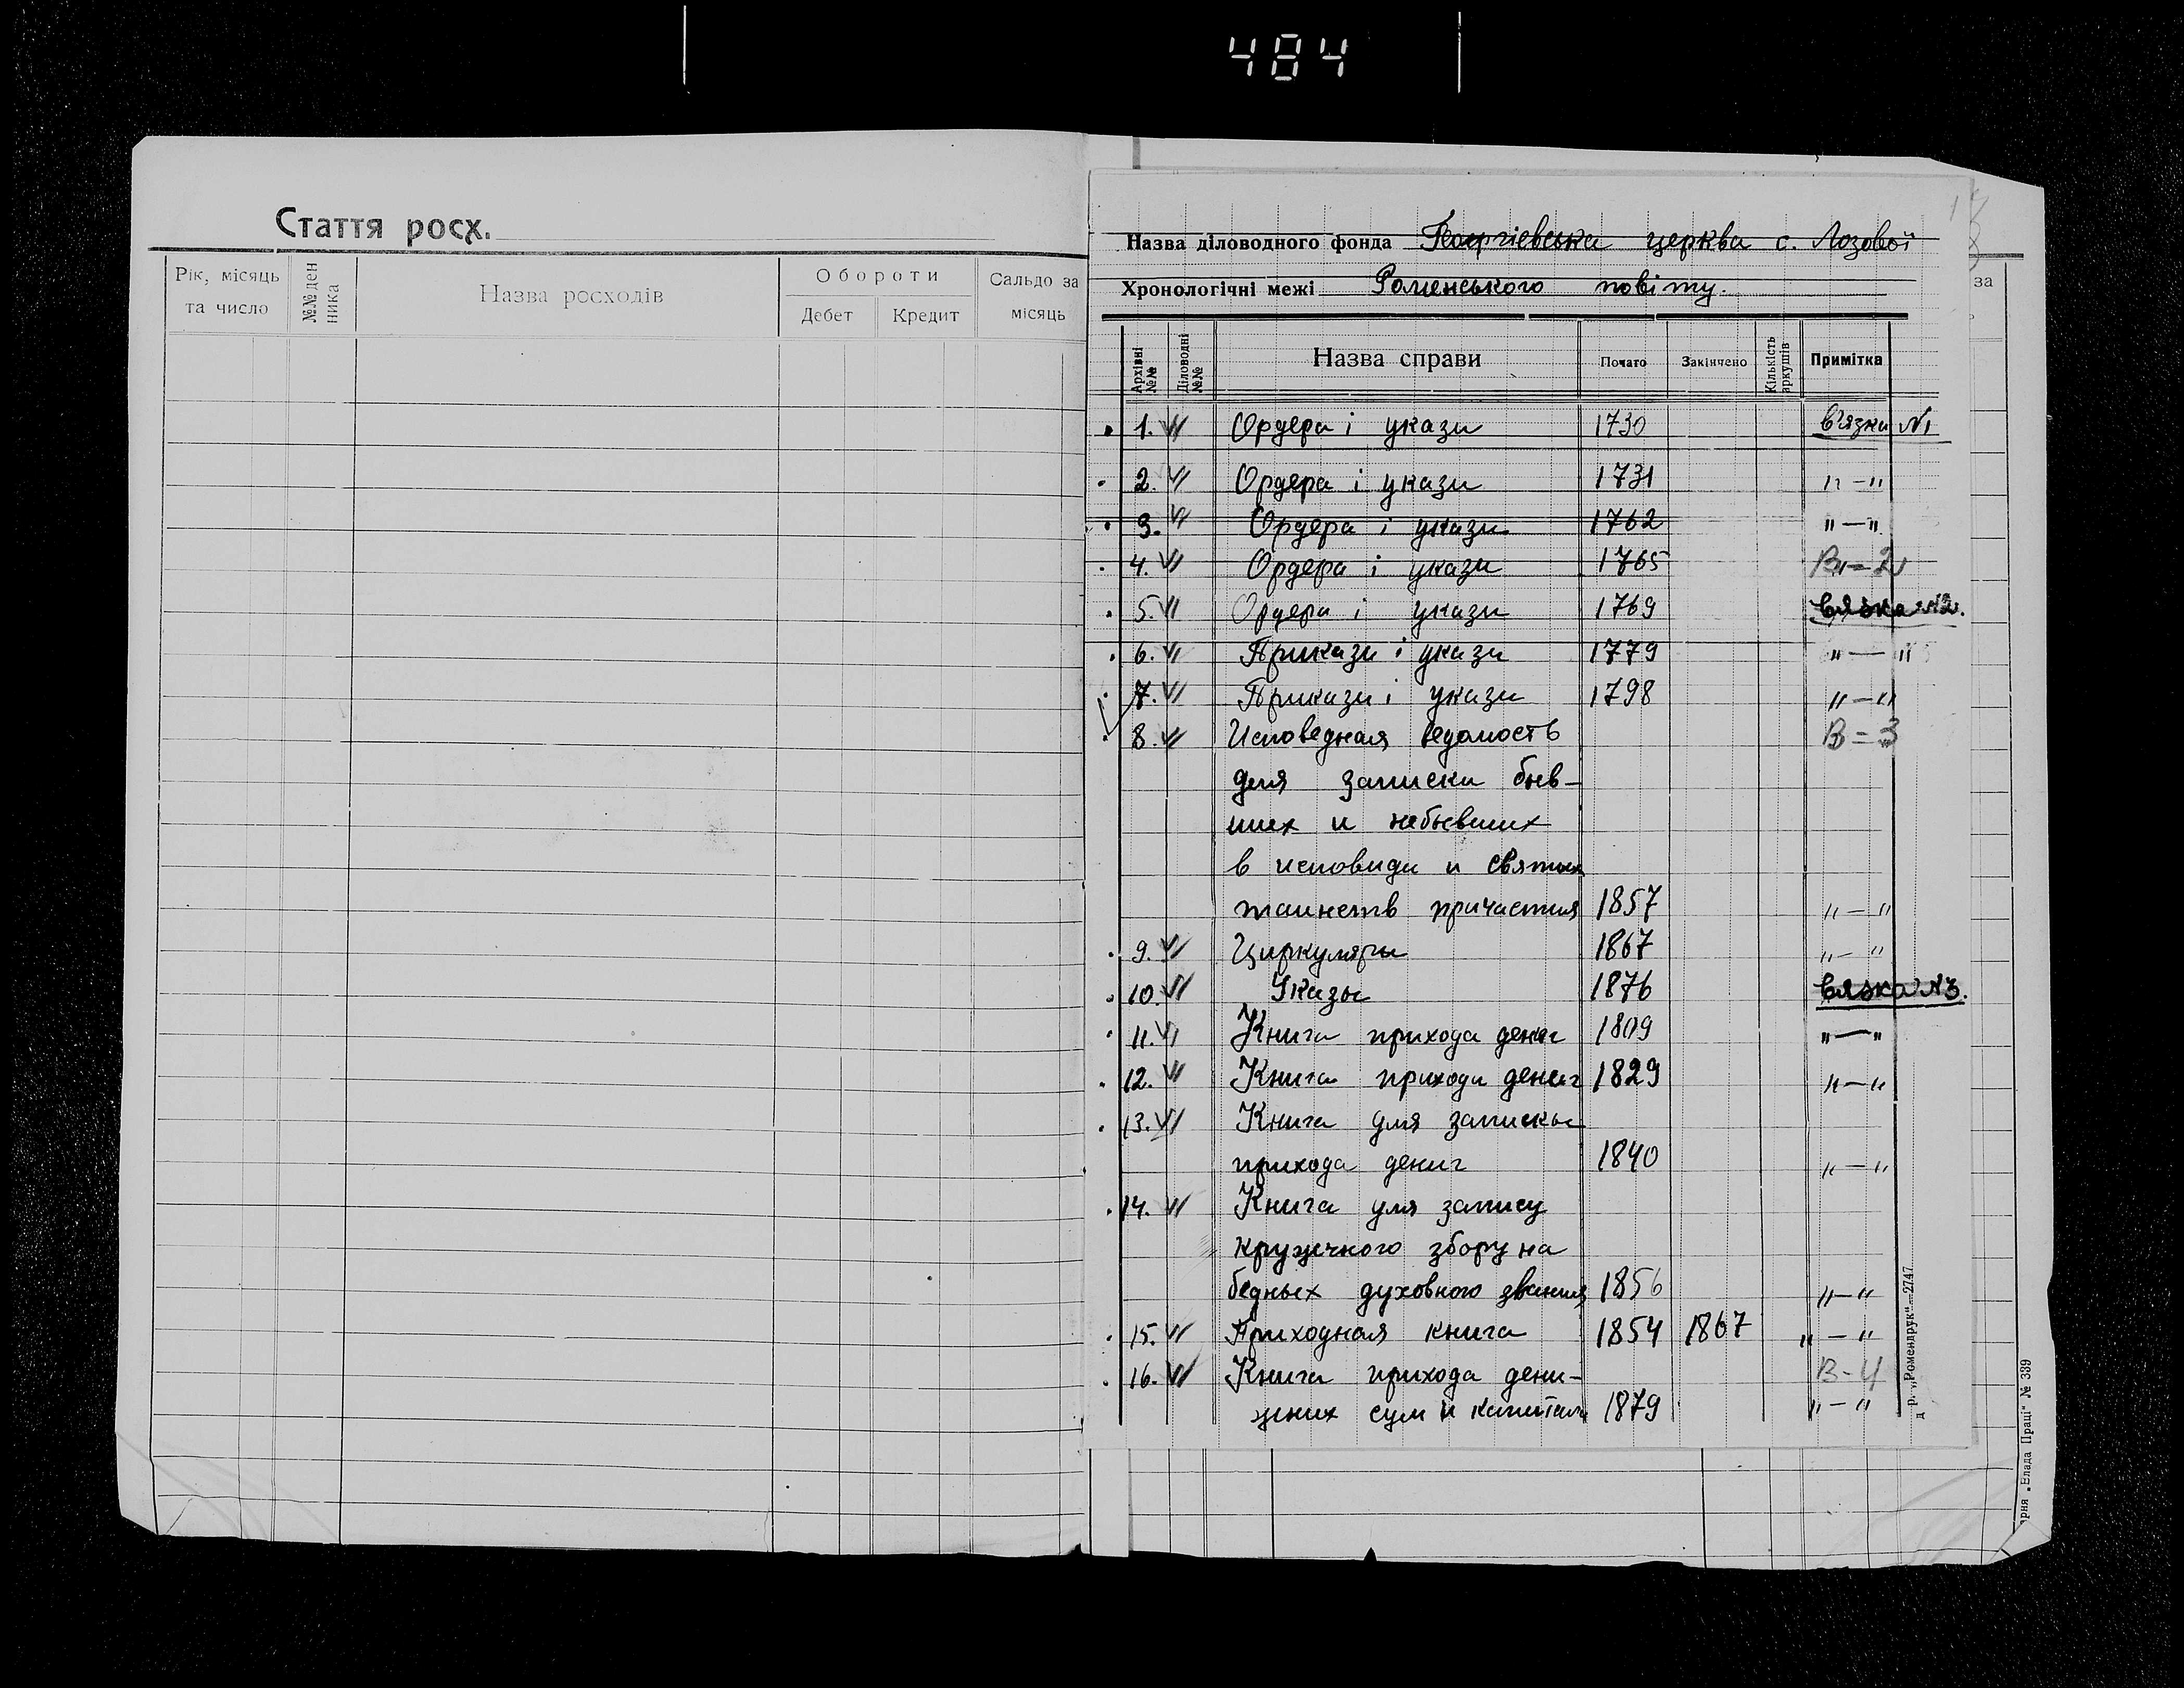 484
Стаття росх.
Рік, місяць та число
№№ ден ника
Назва росходів
Обороти
Дебет
Кредит
Сальдо за місяць
за
Назва діловодного фонда Георгіевська церква с. Лозової
Хронологічні межі Роменського повіту.
Архівні №№ Діловодні №№ Назва справи Почато Закінчено Кількість аркушів Примітка
1. V Ордера і укази 1730 в'язка №1
2. V Ордера і укази 1731 " — "
3. V Ордера і укази 1762 " — "
4. V Ордера і укази 1765 В — 2
5. V Ордера і укази 1769 вязка №2.
6. V Прикази і укази 1779 " — "
7. V Прикази і укази 1798 " — "
8. V Исповедная ведомость В = 3
для записки быв-
ших и небывших
в исповиди и святых
таинств причастия 1857 " — "
9. V Циркуляры 1867 " — "
10. V Указы 1876 вязка №3.
11. V Книга прихода денег 1809 " — "
12. V Книга прихода денег 1829 " — "
13. V Книга для запискы
прихода дениг 1840 " — "
14. V Книга для запису
кружечного збору на
бедных духовного звания 1856 " — "
15. V Приходная книга 1854 1867 " — "
16. V Книга прихода дени- В - 4
жних сум и капитал 1879 " — "
д р. „Ромендрук" — 2747
арня „Влада Праці" № 339